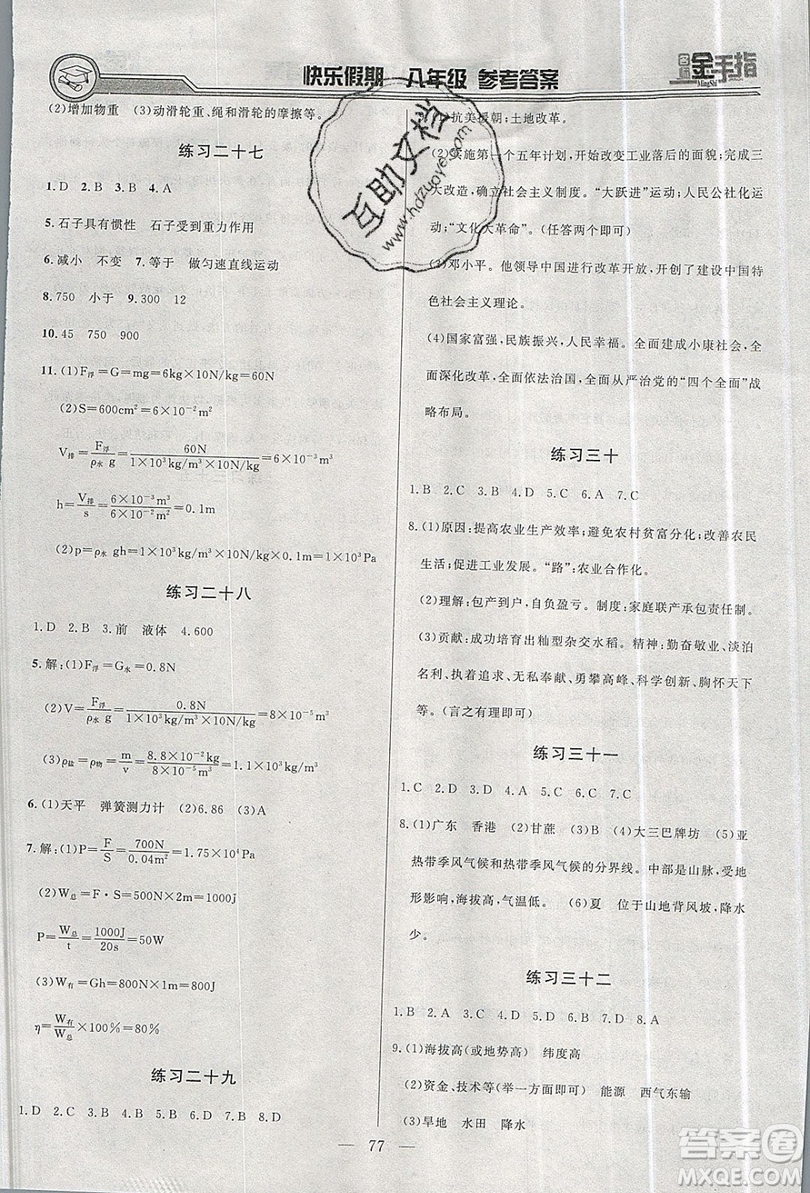 快乐假期 八年级 参考答案
名师金手指
MingShi
(2)增加物重 (3)动滑轮重、绳和滑轮的摩擦等。
练习二十七
1.D 2.B 3.B 4.A
5.石子具有惯性 石子受到重力作用
6.减小 不变 7.等于 做匀速直线运动
8.750 小于 9.300 12
10.45 750 900
11.(1)F浮=G=mg=6kg×10N/kg=60N
(2)S=600cm²=6×10⁻²m²
V排=F浮/ρ水 g=60N/1×10³kg/m³×10N/kg=6×10⁻³m³
h=V排/s=6×10⁻³m³/6×10⁻²m²=0.1m
(2)p=ρ水 gh=1×10³kg/m³×10N/kg×0.1m=1×10³Pa
练习二十八
1.D 2.B 3.前 液体 4.600
5.解:(1)F浮=G水=0.8N
(2)V=F浮/ρ水 g=0.8N/1×10³kg/m³×10N/kg=8×10⁻⁵m³
(3)ρ盐=ρ物=m/v=8.8×10⁻²kg/8×10⁻⁵m³=1.1×10³kg/m³
6.(1)天平 弹簧测力计 (2)6.86 (3)A
7.解:(1)P=F/S=700N/0.04m²=1.75×10⁴Pa
(2)W总=F·S=500N×2m=1000J
P=W总/t=1000J/20s=50W
(3)W有=Gh=800N×1m=800J
η=W有/W总×100%=80%
练习二十九
1.D 2.A 3.B 4.D 5.D 6.B 7.D 8.C
抗美援朝;土地改革。
(2)实施第一个五年计划,开始改变工业落后的面貌;完成三
大改造,确立社会主义制度。“大跃进”运动;人民公社化运
动;“文化大革命”。(任答两个即可)
(3)邓小平。他领导中国进行改革开放,开创了建设中国特
色社会主义理论。
(4)国家富强,民族振兴,人民幸福。全面建成小康社会,
全面深化改革,全面依法治国,全面从严治党的“四个全面”战
略布局。
练习三十
1.B 2.C 3.B 4.D 5.C 6.A 7.C
8.(1)原因:提高农业生产效率;避免农村贫富分化;改善农民
生活;促进工业发展。“路”:农业合作化。
(2)理解:包产到户,自负盈亏。制度:家庭联产承包责任制。
(3)贡献:成功培育出籼型杂交水稻。精神:勤奋敬业、淡泊
名利、执着追求、无私奉献、勇攀高峰、科学创新、胸怀天下
等。(言之有理即可)
练习三十一
1.C 2.D 3.D 4.A 5.C 6.D 7.C
8.(1)广东 香港 (2)甘蔗 (4)大三巴牌坊 (5)亚
热带季风气候和热带季风气候的分界线。中部是山脉,受地
形影响,海拔高,气温低。 (6)夏 位于山地背风坡,降水
少。
练习三十二
1.B 2.A 3.D 4.A 5.D 6.B 7.C 8.D
9.(1)海拔高(或地势高) 纬度高
(2)资金、技术等(举一方面即可) 能源 西气东输
(3)旱地 水田 降水
77
互助文档
www.hdzuoye.com
答案圈
MXQE.COM